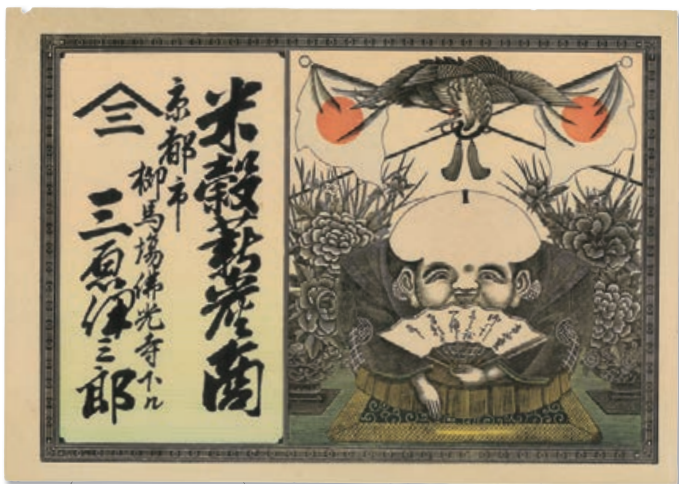 米穀薪炭商
京都市
柳馬場佛光寺下ル
三
三原伊三郎